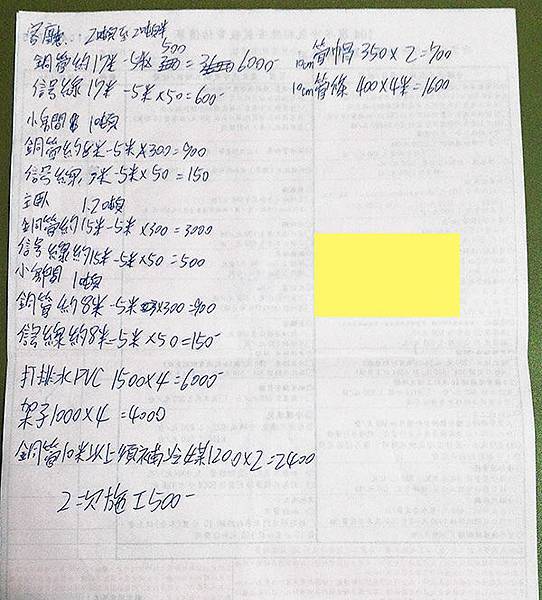 客廳. 2噸至2噸半
銅管約17米-5米x500=6000-
信号線17米-5米x50=600-
小房間 1噸
銅管約8米-5米x300=900
信号線 米-5米x50=150
主臥 1.2噸
銅管約15米-5米x300=3000
信号線約15米-5米x50=500
小房間 1噸
銅管約8米-5米x300=900
信号線約8米-5米x50=150-
打排水PVC 1500x4=6000-
架子1000x4=4000
銅管10米以上須補冷媒1200x2=2400
2次施工500-
10cm管帽350x2=700
10cm管條400x4米=1600